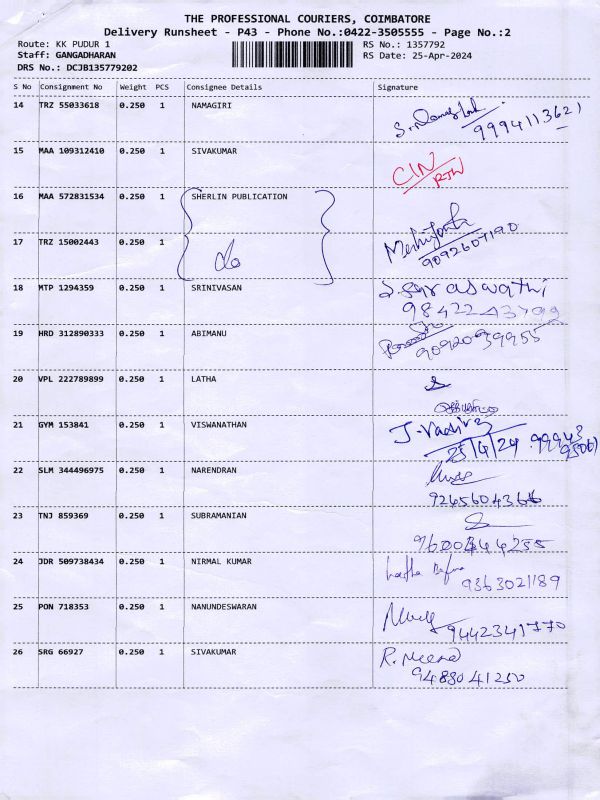 THE PROFESSIONAL COURIERS, COIMBATORE
Delivery Runsheet - P43 - Phone No.:0422-3505555 - Page No.:2
Route: KK PUDUR 1 RS No.: 1357792
Staff: GANGADHARAN RS Date: 25-Apr-2024
DRS No.: DCJB135779202
S No Consignment No Weight PCS Consignee Details Signature
14 TRZ 55033618 0.250 1 NAMAGIRI
9994113621
15 MAA 109312410 0.250 1 SIVAKUMAR
CIN
16 MAA 572831534 0.250 1 SHERLIN PUBLICATION
17 TRZ 15002443 0.250 1
do
9092607190
18 MTP 1294359 0.250 1 SRINIVASAN S. Saraswathi
9842243799
19 HRD 312890333 0.250 1 ABIMANU
9092039955
20 VPL 222789899 0.250 1 LATHA
21 GYM 153841 0.250 1 VISWANATHAN J. Vadive
25/4/24 99943
95061
22 SLM 344496975 0.250 1 NARENDRAN
23 TNJ 859369 0.250 1 SUBRAMANIAN
24 JDR 509738434 0.250 1 NIRMAL KUMAR
9363021189
25 PON 718353 0.250 1 NANUNDESWARAN
9442341770
26 SRG 66927 0.250 1 SIVAKUMAR R. Meena
9488041250